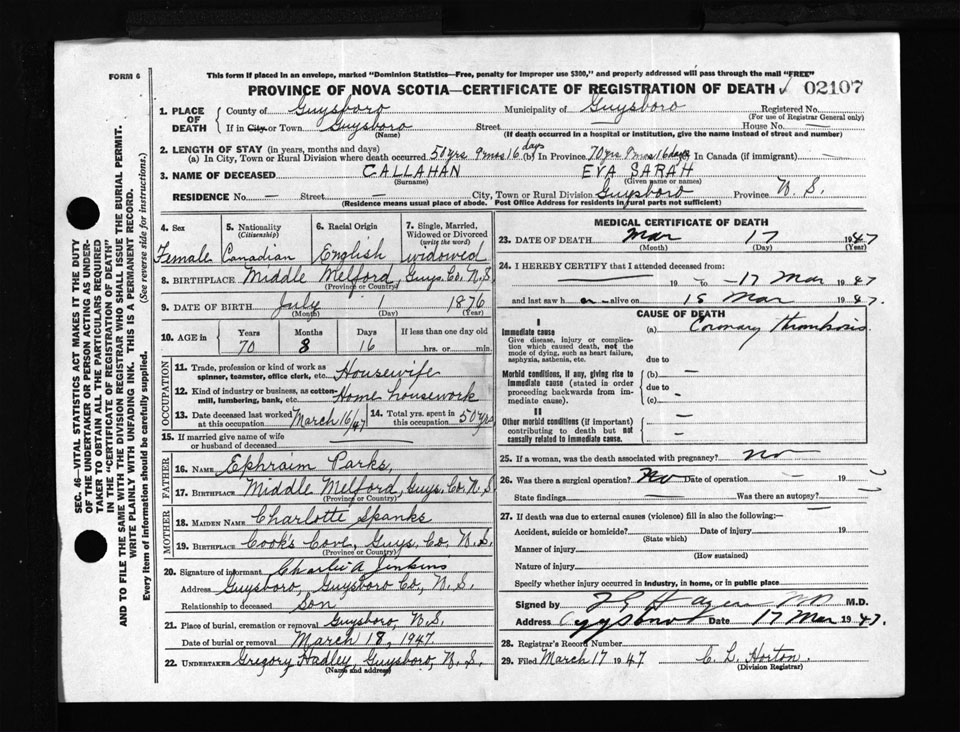 FORM 6
This form if placed in an envelope, marked "Dominion Statistics—Free, penalty for improper use $300," and properly addressed will pass through the mail "FREE"
PROVINCE OF NOVA SCOTIA—CERTIFICATE OF REGISTRATION OF DEATH 02107
1. PLACE OF DEATH County of Guysboro Municipality of Guysboro Registered No.
(For use of Registrar General only)
If in City or Town Guysboro Street House No. —
(Name) (If death occurred in a hospital or institution, give the name instead of street and number)
2. LENGTH OF STAY (in years, months and days)
(a) In City, Town or Rural Division where death occurred 50 yrs 9 mos 16 days (b) In Province 70 yrs 9 mos 16 days (c) In Canada (if immigrant) —
3. NAME OF DECEASED CALLAHAN EVA SARAH
(Surname) (Given name or names)
RESIDENCE No. — Street — City, Town or Rural Division Guysboro Province N. S.
(Residence means usual place of abode. Post Office Address for residents in rural parts not sufficient)
4. Sex 5. Nationality 6. Racial Origin 7. Single, Married, Widowed or Divorced
(Citizenship) (write the word)
Female Canadian English widowed
8. BIRTHPLACE Middle Melford, Guys. Co. N. S.
(Province or Country)
9. DATE OF BIRTH July 1 1876
(Month) (Day) (Year)
10. AGE in Years Months Days If less than one day old
70 8 16 hrs. or min.
OCCUPATION
11. Trade, profession or kind of work as spinner, teamster, office clerk, etc. Housewife
12. Kind of industry or business, as cotton-mill, lumbering, bank, etc. Home housework
13. Date deceased last worked at this occupation March 16/47 14. Total yrs. spent in this occupation 50 yrs.
15. If married give name of wife or husband of deceased
FATHER
16. NAME Ephraim Parks,
17. BIRTHPLACE Middle Melford, Guys. Co. N. S.
(Province or Country)
MOTHER
18. MAIDEN NAME Charlotte Spanks
19. BIRTHPLACE Cook's Cove, Guys. Co. N. S.
(Province or Country)
20. Signature of informant Charlie A Jenkins
Address Guysboro, Guysboro Co., N. S.
Relationship to deceased Son
21. Place of burial, cremation or removal Guysboro, N. S.
Date of burial or removal March 18, 1947.
22. UNDERTAKER Gregory Hadley, Guysboro, N. S.
(Name and address)
MEDICAL CERTIFICATE OF DEATH
23. DATE OF DEATH Mar 17 1947
(Month) (Day) (Year)
24. I HEREBY CERTIFY that I attended deceased from:
— 19 — to — 17 Mar 1947
and last saw her alive on 15 Mar 1947.
CAUSE OF DEATH
I
Immediate cause (a) Coronary thrombosis
Give disease, injury or complication which caused death, not the mode of dying, such as heart failure, asphyxia, asthenia, etc.
due to
Morbid conditions, if any, giving rise to immediate cause (stated in order proceeding backwards from immediate cause).
(b) —
due to
(c) —
II
Other morbid conditions (if important) contributing to death but not causally related to immediate cause.
25. If a woman, was the death associated with pregnancy? no
26. Was there a surgical operation? No Date of operation — 19 —
State findings — Was there an autopsy? —
27. If death was due to external causes (violence) fill in also the following:—
Accident, suicide or homicide? Date of injury 19
(State which)
Manner of injury
(How sustained)
Nature of injury
Specify whether injury occurred in industry, in home, or in public place
Signed by M.D.
Address Date 17 Mar 1947.
28. Registrar's Record Number
29. Filed March 17 1947 C. L. Horton.
(Division Registrar)
SEC. 46—VITAL STATISTICS ACT MAKES IT THE DUTY
OF THE UNDERTAKER OR PERSON ACTING AS UNDER-
TAKER TO OBTAIN ALL THE PARTICULARS REQUIRED
IN THE "CERTIFICATE OF REGISTRATION OF DEATH"
AND TO FILE THE SAME WITH THE DIVISION REGISTRAR WHO SHALL ISSUE THE BURIAL PERMIT.
WRITE PLAINLY WITH UNFADING INK. THIS IS A PERMANENT RECORD.
Every item of information should be carefully supplied. (See reverse side for instructions.)